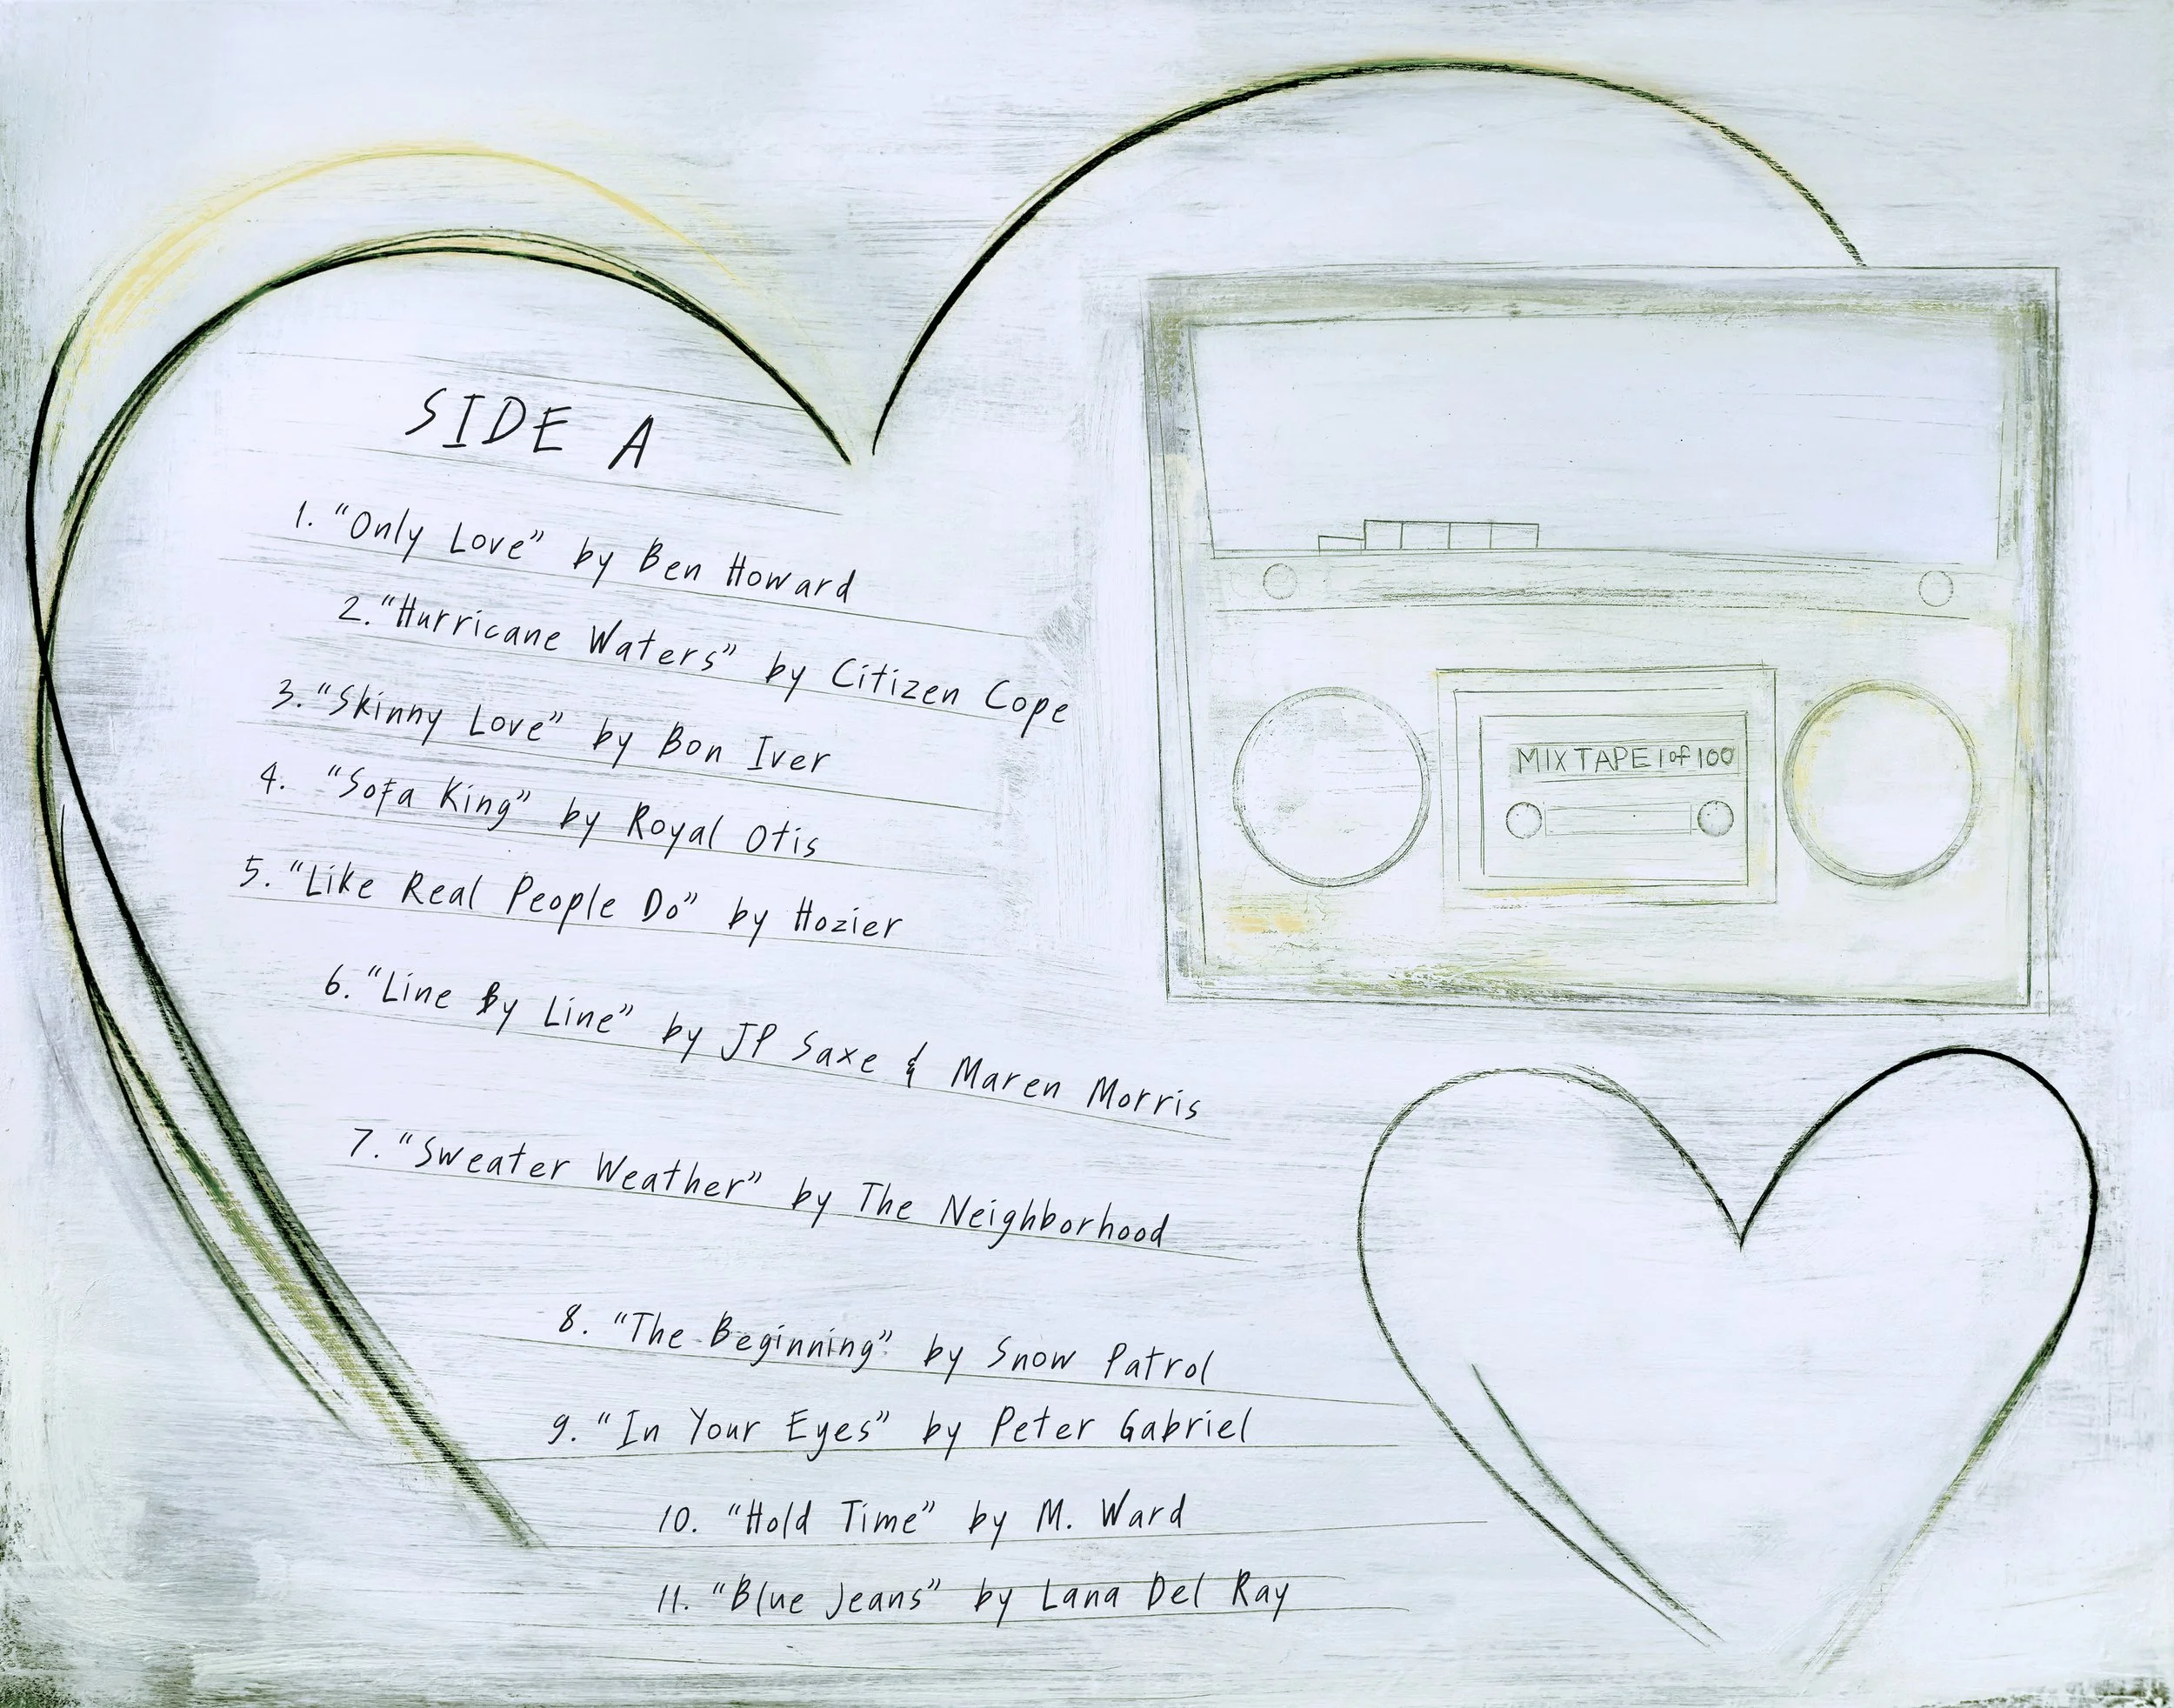 SIDE A
1. “Only Love” by Ben Howard
2. “Hurricane Waters” by Citizen Cope
3. “Skinny Love” by Bon Iver
4. “Sofa King” by Royal Otis
5. “Like Real People Do” by Hozier
6. “Line By Line” by JP Saxe & Maren Morris
7. “Sweater Weather” by The Neighborhood
8. “The Beginning” by Snow Patrol
9. “In Your Eyes” by Peter Gabriel
10. “Hold Time” by M. Ward
11. “Blue Jeans” by Lana Del Ray
MIX TAPE 1 of 100